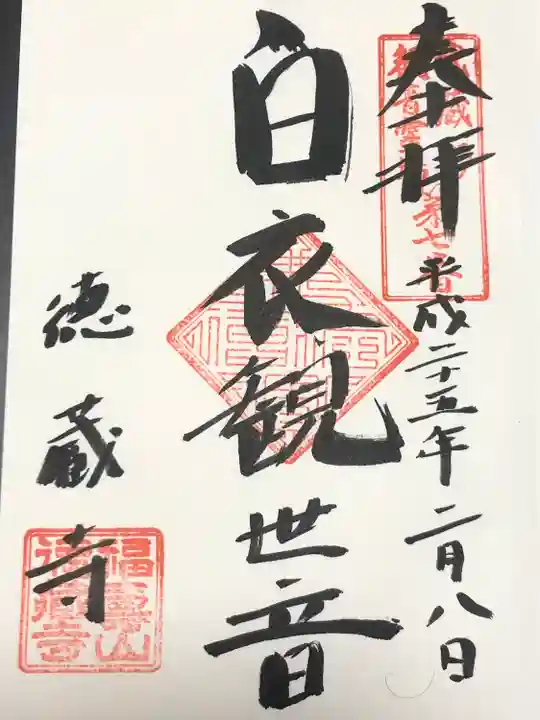 奉拝
平成二十五年二月八日
白衣観世音
徳蔵寺
福寿山
徳蔵寺